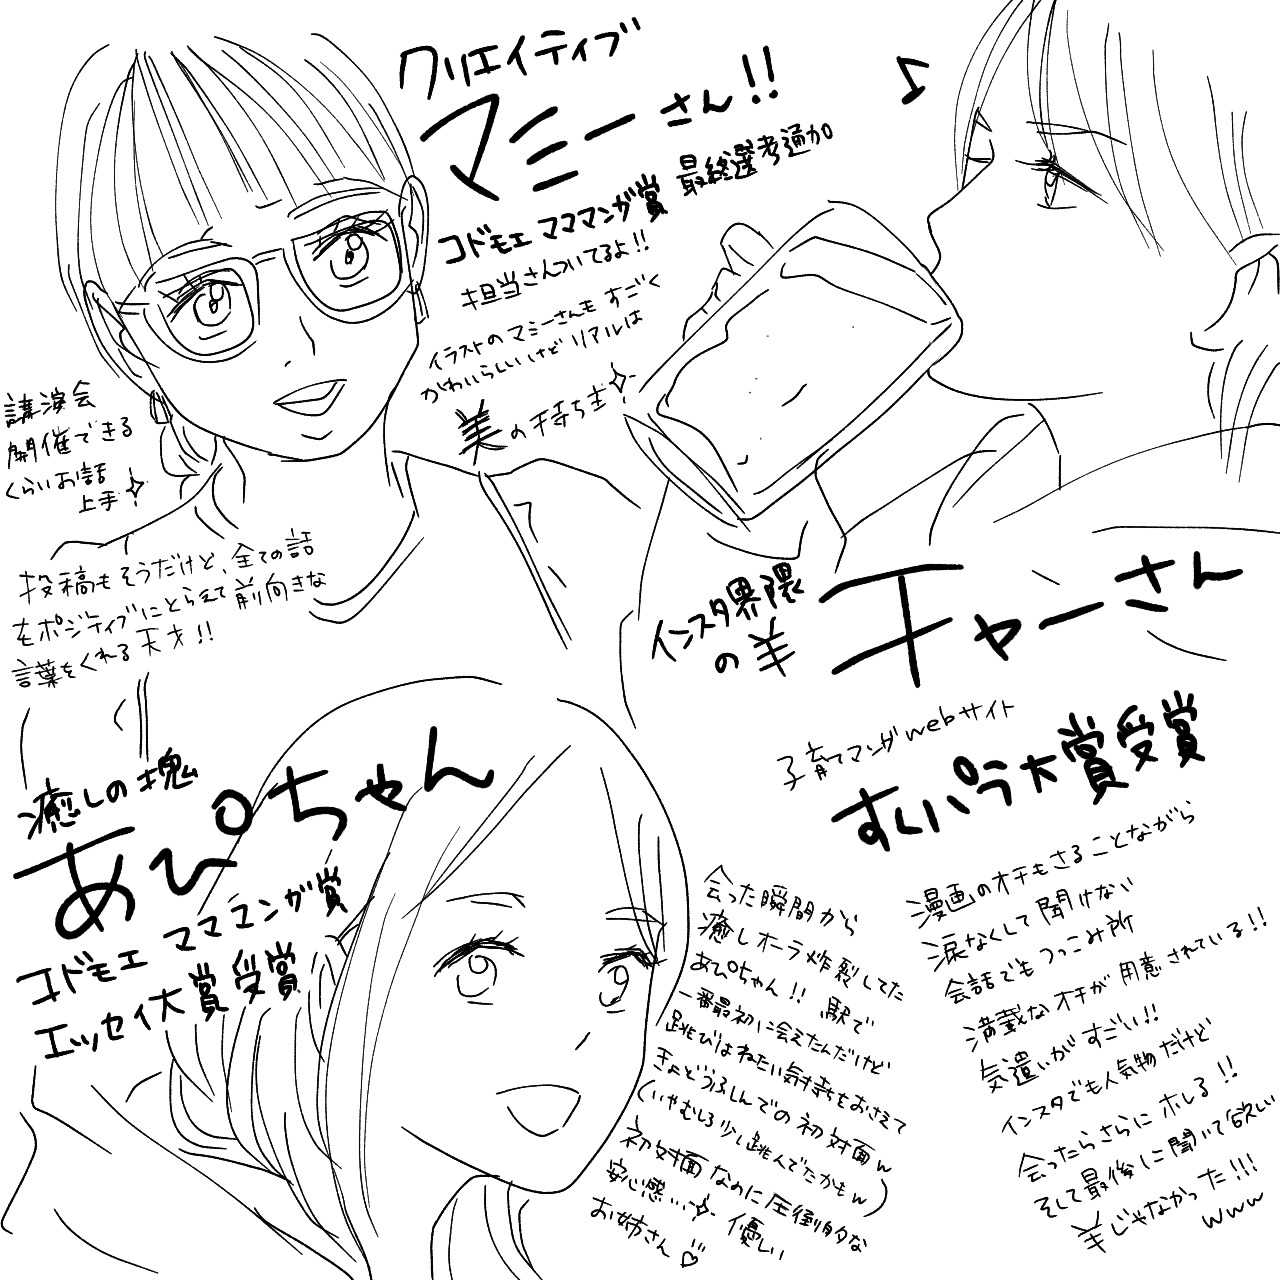 クリエイティブ
マミーさん!!
コドモエ ママママンガ賞 最終選考通過
担当さんついてるよ!!
イラストのマミーさんも すごく
かわいらしいけど リアルは
美の持ち主
講演会
開催できる
くらいお話
上手
投稿もそうだけど、全ての話
をポジティブにとらえて前向きな
言葉をくれる天才!!
インスタ界隈
の羊
チャーさん
子育てマンガwebサイト
すくパラ大賞受賞
漫画のオチもさることながら
涙なくして聞けない
会話でもつっこみ所
満載なオチが用意されている!!
気遣いがすごい!!
インスタでも人気物だけど
会ったらさらにホレる!!
そして最後に聞いて欲しい
羊じゃなかった!!!
www
癒しの塊
あぴちゃん
コドモエ ママママンガ賞
エッセイ大賞受賞
会った瞬間から
癒しオーラ炸裂してた
あぴちゃん!! 駅で
一番最初に会えたんだけど
跳びはねたい気持ちをおさえて
きょどうふしんでの初対面w
(いやむしろ少し跳んでたかもw)
初対面なのに圧倒的な
安心感…優しい
お姉さん♡